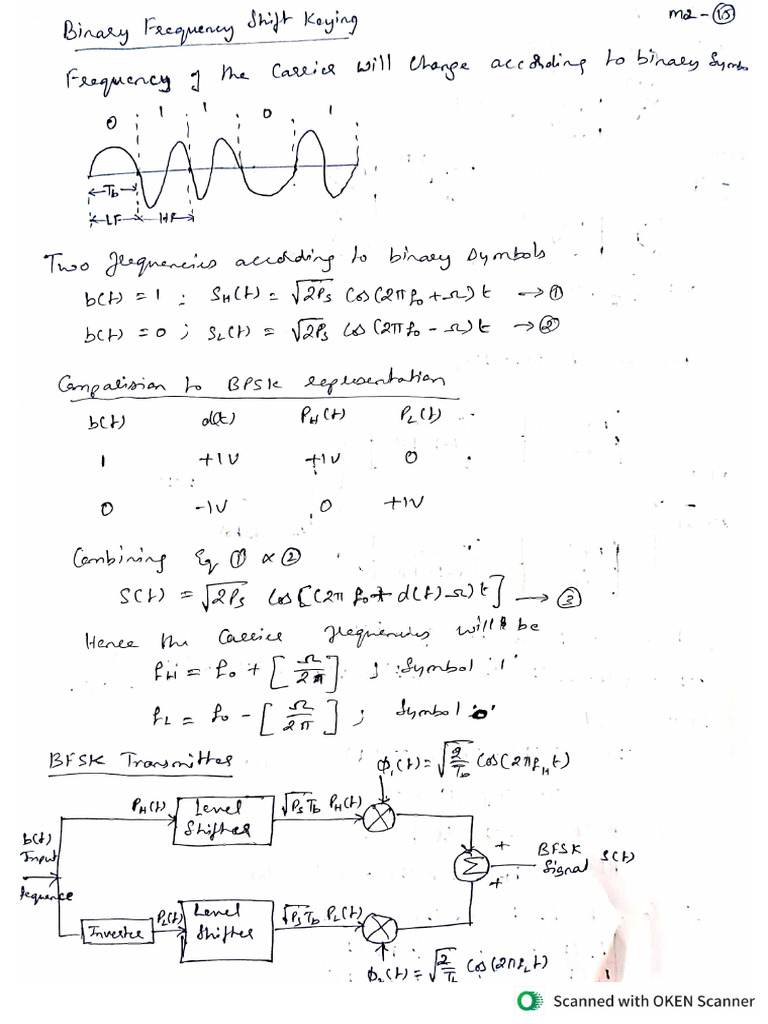 Binary Frequency Shift Keying
m2 - 15
Frequency of the Carrier will change according to binary Symbo
0 1 1 0 1
Tb
LF HF
Two frequencies according to binary symbols
b(t) = 1 ; SH(t) = √2Ps Cos (2π fo + Ω) t → ①
b(t) = 0 ; SL(t) = √2Ps Cos (2π fo - Ω) t → ②
Comparision to BPSK representation
b(t) d(t) PH(t) PL(t)
1 +1V +1V 0
0 -1V 0 +1V
Combining Eq ① & ②
S(t) = √2Ps Cos [(2π fo + d(t) Ω) t] → ③
Hence the Carrier frequencies will be
fH = fo + [Ω/2π] ; Symbol '1'
fL = fo - [Ω/2π] ; Symbol '0'
BFSK Transmitter
ϕ1(t) = √2/Tb Cos(2π fH t)
PH(t) Level Shifter √PsTb PH(t)
b(t) Input Sequence
+ + Σ BFSK Signal S(t)
Inverter PL(t) Level Shifter √PsTb PL(t)
ϕ2(t) = √2/TL Cos(2π fL t)
Scanned with OKEN Scanner